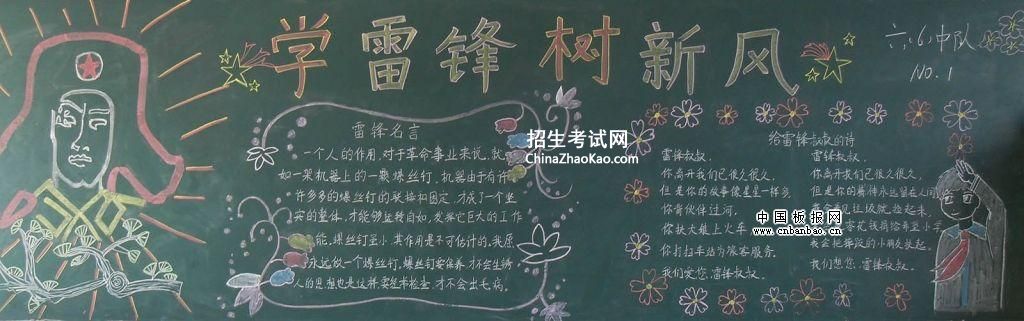 学雷锋树新风
六(6)中队
NO.1
雷锋名言
一个人的作用,对于革命事业来说,就
如一架机器上的一颗螺丝钉,机器由于有许
许多多的螺丝钉的联接和固定,才成了一个坚
实的整体,才能够运转自如,发挥它巨大的工作
能,螺丝钉虽小,其作用是不可估计的,我愿
永远做一个螺丝钉。螺丝钉要保养,才不会生锈
人的思想也是这样,要经常检查,才不会出毛病。
招生考试网
ChinaZhaoKao.com
给雷锋叔叔的诗
雷锋叔叔,
你离开我们已很久很久,
但是你的故事像星星一样多
你背伙伴过河,
你扶大娘上火车
你打扫车站为旅客服务。
我们爱您,雷锋叔叔。
雷锋叔叔,
你离开我们已很久很久,
但是你的精神永远留在人间
垃圾就捡起来,
零花钱捐给希望小学
我会把摔跤的小朋友扶起。
我们想您,雷锋叔叔。
中国板报网
www.cnbanbao.cn